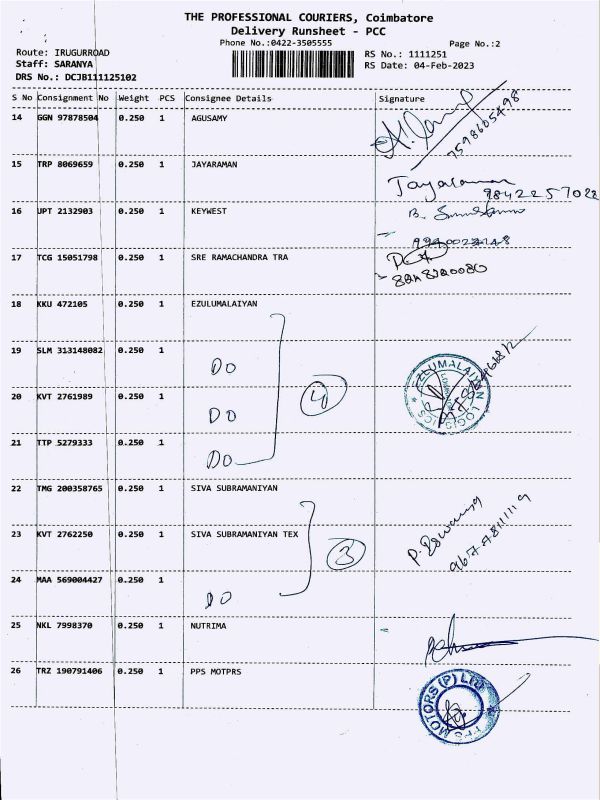 THE PROFESSIONAL COURIERS, Coimbatore
Delivery Runsheet - PCC
Phone No.:0422-3505555
Page No.:2
Route: IRUGURROAD
RS No.: 1111251
Staff: SARANYA
RS Date: 04-Feb-2023
DRS No.: DCJB111125102
S No Consignment No Weight PCS Consignee Details Signature
14 GGN 97878504 0.250 1 AGUSAMY
7598605498
15 TRP 8069659 0.250 1 JAYARAMAN
Jayaraman
9842257028
16 UPT 2132903 0.250 1 KEYWEST
17 TCG 15051798 0.250 1 SRE RAMACHANDRA TRA
18 KKU 472105 0.250 1 EZULUMALAIYAN
19 SLM 313148082 0.250 1 DO
20 KVT 2761989 0.250 1 DO
4
EZULUMALAIYAN LOGISTICS
21 TTP 5279333 0.250 1 DO
22 TMG 200358765 0.250 1 SIVA SUBRAMANIYAN
23 KVT 2762250 0.250 1 SIVA SUBRAMANIYAN TEX
3
P. Eswaran
24 MAA 569004427 0.250 1 DO
25 NKL 7998370 0.250 1 NUTRIMA
26 TRZ 190791406 0.250 1 PPS MOTPRS
PPS MOTORS (P) LTD